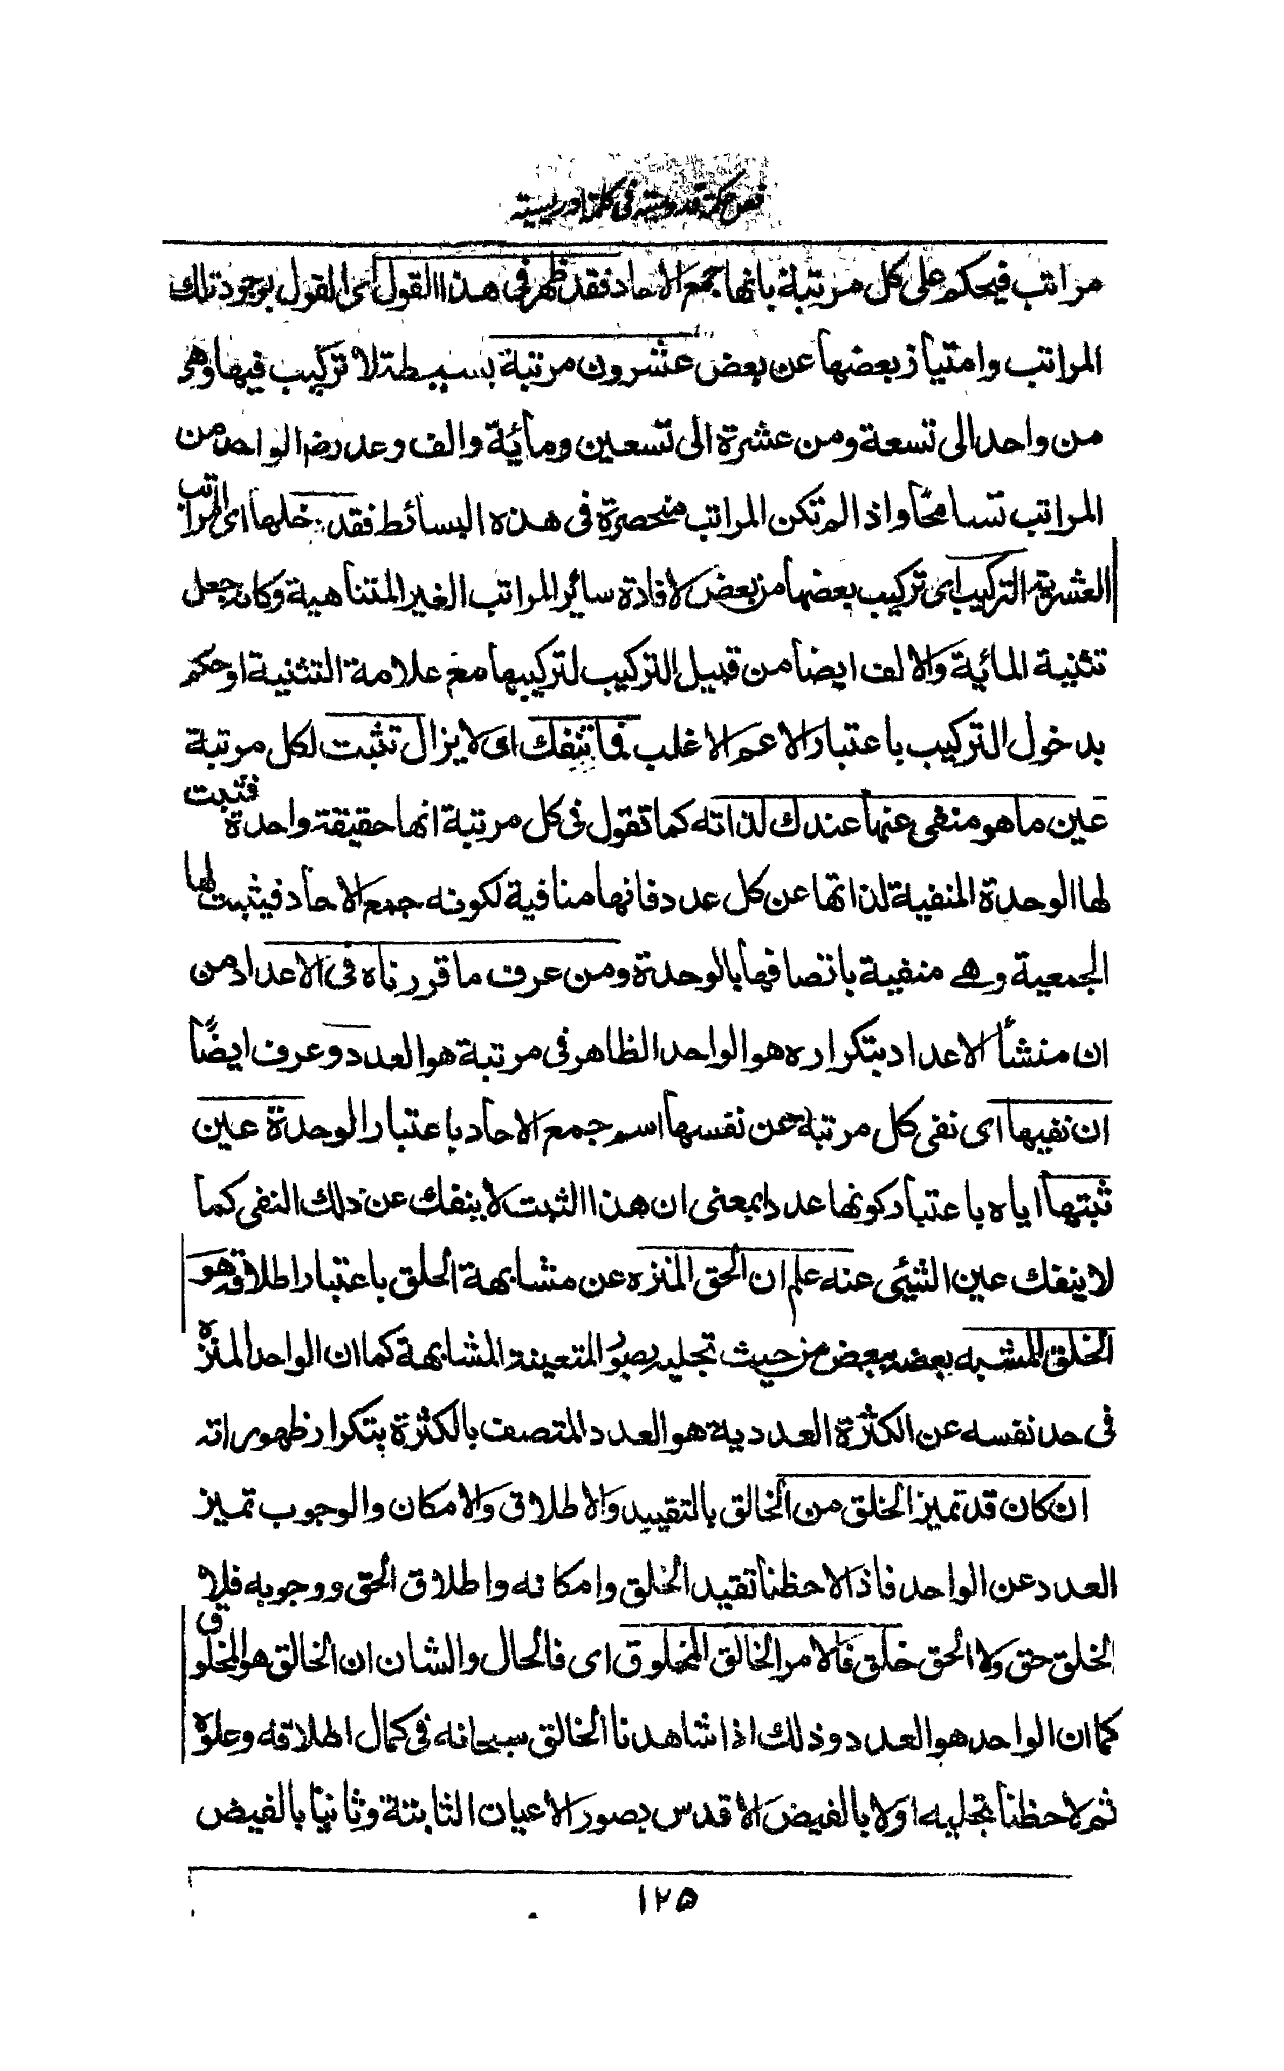 فص حكمة قدوسية في كلمة ادريسية
مراتب فيحكم على كل مرتبة بانها جمع الاحاد فقد ظهر في هذا القول اى القول بوجود تلك
المراتب وامتياز بعضها عن بعض عشرون مرتبة بسيطة لا تركيب فيها وهى
من واحد الى تسعة ومن عشرة الى تسعين ومائة والف وعد رضـ الواحد من
المراتب تسامحًا واذا لم تكن المراتب منحصرة فى هذه البسائط فقد دخلها اى المراتب
العشرين التركيب اى تركيب بعضها من بعض لافادة سائر المراتب الغير المتناهية وكانه جعل
تثنية المائية والالف ايضا من قبيل التركيب لتركيبها مع علامة التثنية او حكم
بدخول التركيب باعتبار الاعم الاغلب فما تنفك اى لا يزال تثبت لكل مرتبة
عين ما هو منفى عنها عندك لذاته كما تقول فى كل مرتبة انها حقيقة واحدة فتثبت
لها الوحدة المنفية لذاتها عن كل عدد فانها منافية لكونه جمع الاحاد فيثبت لها
الجمعية وهے منفية باتصافها بالوحدة ومن عرف ما قررناه فى الاعداد من
ان منشأ الاعداد بتكراره هو الواحد الظاهر فى مرتبة هو العدد وعرف ايضًا
ان نفيها اى نفى كل مرتبة عن نفسها اسم جمع الاحاد باعتبار الوحدة عين
ثبتها اياه باعتبار كونها عددا بمعنى ان هذا الثبت لا ينفك عن ذلك النفى كما
لا ينفك عين الشيئى عنه علم ان الحق المنزه عن مشابهة الخلق باعتبار اطلاقه هو
الخلق المشبه بعضه ببعض من حيث تجليه بصور المتعينة المشابهة كما ان الواحد المنزه
فى حد نفسه عن الكثرة العددية هو العدد المتصف بالكثرة بتكرار ظهوراته
ان كان قد تميز الخلق من الخالق بالتقييد والاطلاق والامكان والوجوب تميز
العدد عن الواحد فاذا لاحظنا تقيد الخلق وامكانه واطلاق الحق ووجوبه فلا
الخلق حق ولا الحق خلق فالامر الخالق المخلوق اى فالحال والشان ان الخالق هو المخلوق
كما ان الواحد هو العدد وذلك اذا شاهدنا الخالق سبحانه فى كمال اطلاقه وعلوه
ثم لاحظنا تجليه اولا بالفيض الاقدس بصور الاعيان الثابتة وثانيا بالفيض
١٢٥